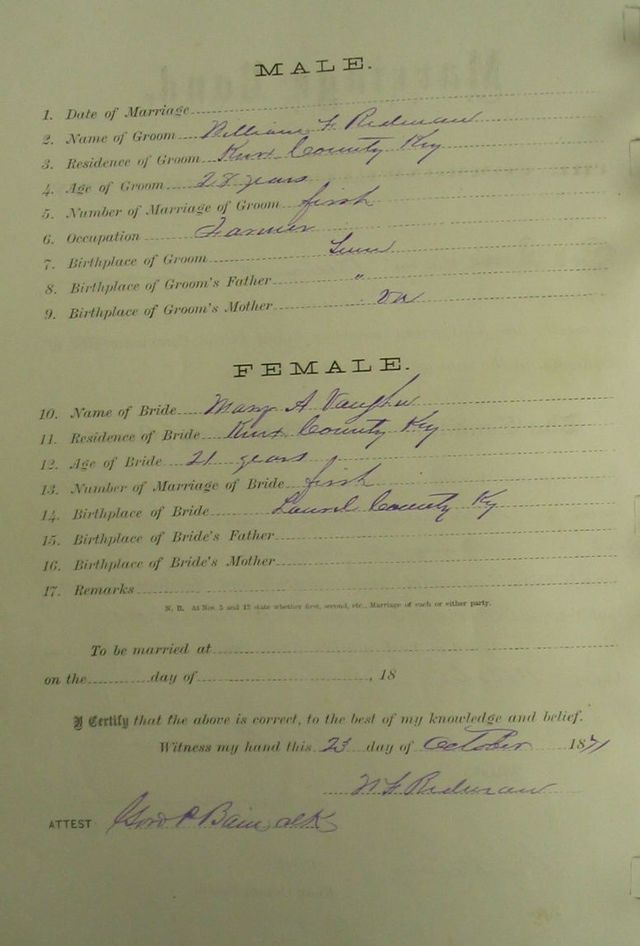 MALE.
1. Date of Marriage
2. Name of Groom William F Redman
3. Residence of Groom Knox County Ky
4. Age of Groom 28 years
5. Number of Marriage of Groom first
6. Occupation Farmer
7. Birthplace of Groom Tenn
8. Birthplace of Groom's Father "
9. Birthplace of Groom's Mother Va
FEMALE.
10. Name of Bride Mary A Vaughn
11. Residence of Bride Knox County Ky
12. Age of Bride 21 years
13. Number of Marriage of Bride first
14. Birthplace of Bride Laurel County Ky
15. Birthplace of Bride's Father
16. Birthplace of Bride's Mother
17. Remarks
N. B. At Nos. 5 and 13 state whether first, second, etc., Marriage of each or either party.
To be married at
on the day of , 18
I Certify that the above is correct, to the best of my knowledge and belief.
Witness my hand this 23 day of October 1871
W F Redman
ATTEST